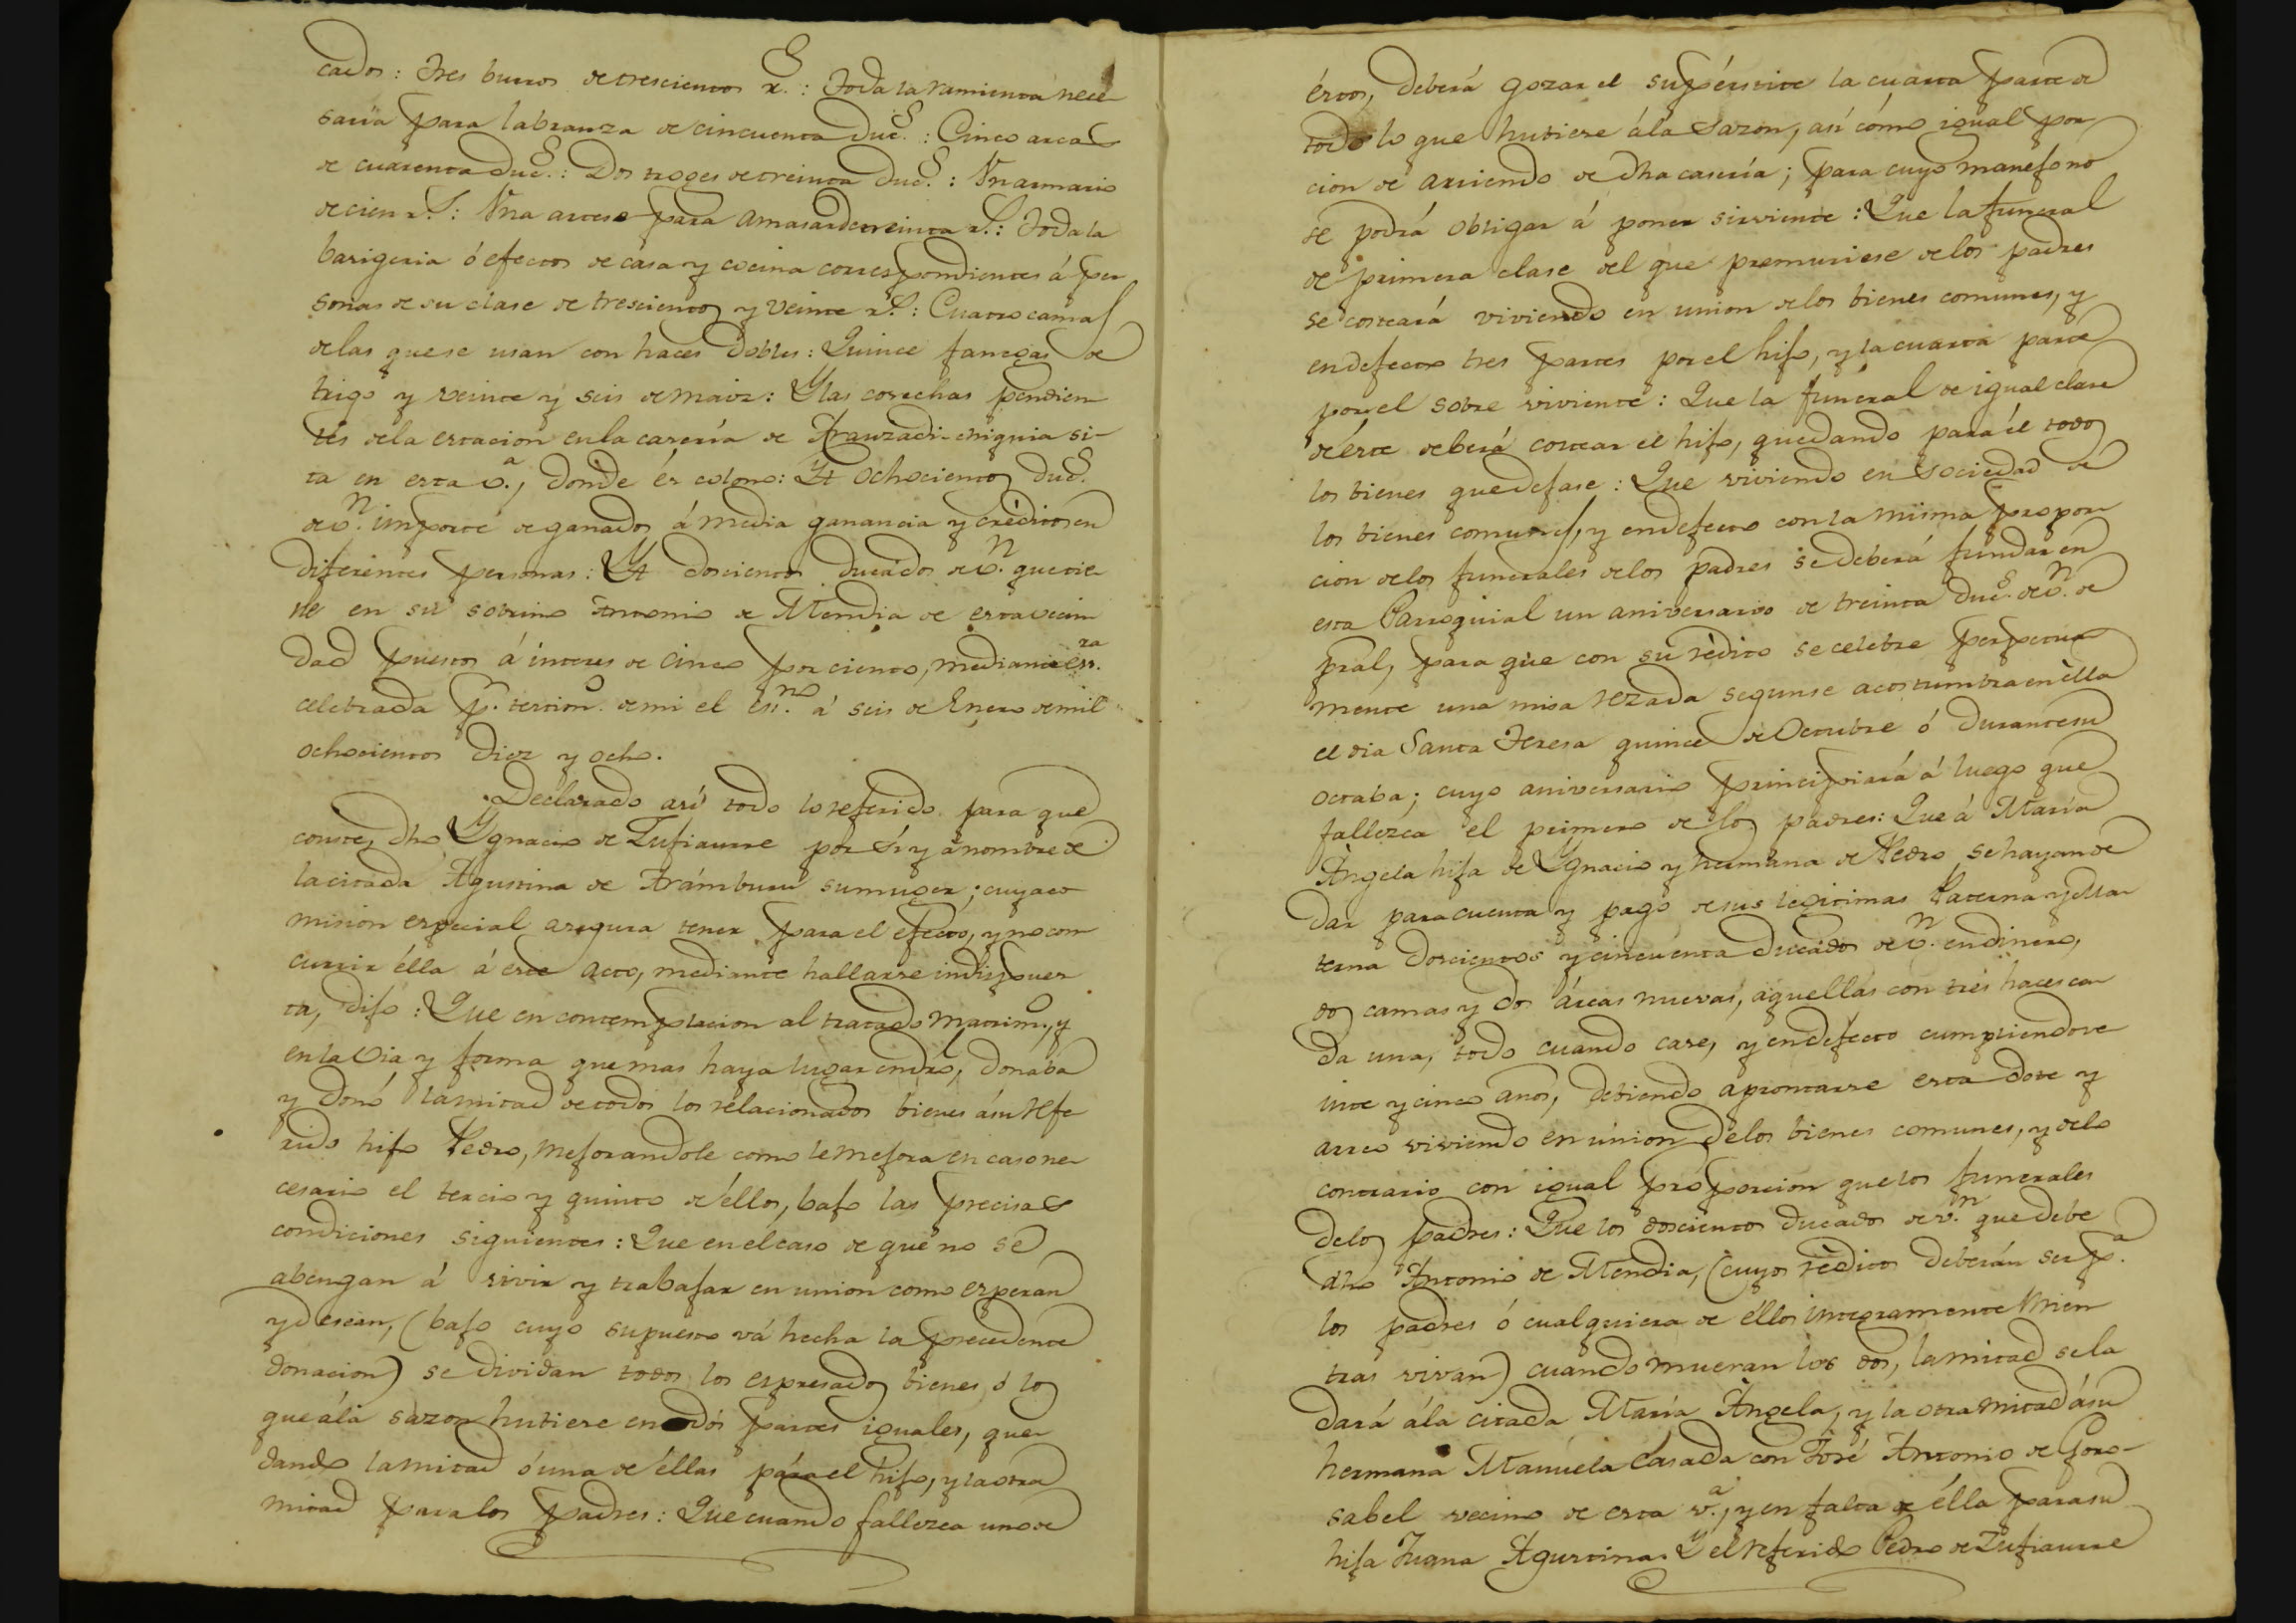 cados: Tres burros de trescientos r.s: Toda la ramienta nece
saria para labranza de cincuenta duc.s: Cinco arcas
de cuarenta duc.s: Dos troges de treinta duc.s: Un armario
de cien r.s: Una artesa para amasar de treinta r.s: Toda la
barigeria ó efectos de casa y cocina correspondientes á per
sonas de su clase de trescientos y veinte r.s: Cuatro camas
de las que se usan con haces dobles: Quince fanegas de
trigo y veinte y seis de maiz: Y las cosechas pendien
tes de la estacion en la casería de Arauzadi-chiquia si-
ta en esta v.a, donde és colono: Yt ochocientos duc.s
de v.n importe de ganados á media ganancia y créditos en
diferentes personas: Yt doscientos ducados de v.n que tie
ne en su sobrino Antonio de Mendia de esta vecin
dad puestos á interes de cinco por ciento, mediante ess.ra
celebrada p.r testim.o de mi el ess.no á seis de Enero de mil
ochocientos diez y ocho.
Declarado así todo lo referido para que
conste, dho Ygnacio de Zufiaurre por sí y á nombre de
la citada Agustina de Arámburu su muger; cuya co
mision especial asegura tener para el efecto, y no con
currir élla á este acto, mediante hallarse indispues
ta, dijo: Que en contemplacion al tratado matrim.o, y
en la via y forma que mas haya lugar en dro, donaba
y donó la mitad de todos los relacionados bienes á su refe
rido hijo Pedro, mejorandole como le mejora en caso ne
cesario el tercio y quinto de éllos, bajo las precisas
condiciones siguientes: Que en el caso de que no se
abengan á vivir y trabajar en union como esperan
y desean, (bajo cuyo supuesto vá hecha la precedente
donacion) se dividan todos los espresados bienes ó los
que á la sazon hubiere en dós partes iguales, que
dando la mitad ó una de éllas para el hijo, y la otra
mitad para los padres: Que cuando fallezca uno de
éstos, deberá gozar el supérstite la cuarta parte de
todo lo que hubiere á la sazon, así cómo igual por
cion de arriendo de dha casería; para cuyo manejo no
se podrá obligar á poner sirviente: Que la funeral
de primera clase del que premuriese de los padres
se costeará viviendo en union de los bienes comunes, y
en defecto tres partes por el hijo, y la cuarta parte
por el sobre viviente: Que la funeral de igual clase
de éste deberá costear el hijo, quedando para él todos
los bienes que dejase: Que viviendo en sociedad de
los bienes comunes, y en defecto con la misma propor
cion de los funerales de los padres se deberá fundar en
esta Parroquial un aniversario de treinta duc.s de v.n de
pral, para que con su rédito se celebre perpetua
mente una misa rezada segun se acostumbra en élla
el dia Santa Teresa quince de Octubre ó durante su
octaba; cuyo aniversario principiará á luego que
fallezca el primero de los padres: Que á María
Ángela hija de Ygnacio y hermana de Pedro se hayan de
dar para cuenta y pago de sus legitimas Paterna y Ma
terna doscientos y cincuenta ducados de v.n en dinero,
dos camas y dos árcas nuevas, aquellas con tres haces ca
da una, todo cuando case, y en defecto cumpliendo ve
inte y cinco años, debiendo aprontarse esta dote y
arreo viviendo en únion de los bienes comunes, y de lo
contrario con igual proporcion que los funerales
de los padres: Que los doscientos ducados de v.n que debe
dho Antonio de Mendia, (cuyos réditos deberán ser p.a
los padres ó cualquiera de éllos integramente mien
tras vivan) cuando mueran los dos, la mitad se la
dará á la citada María Ángela, y la otra mitad á su
hermana Manuela casada con José Antonio de Goro-
sabel vecino de esta v.a, y en falta de élla para su
hija Juana Agustina. Y el referido Pedro de Zufiaurre